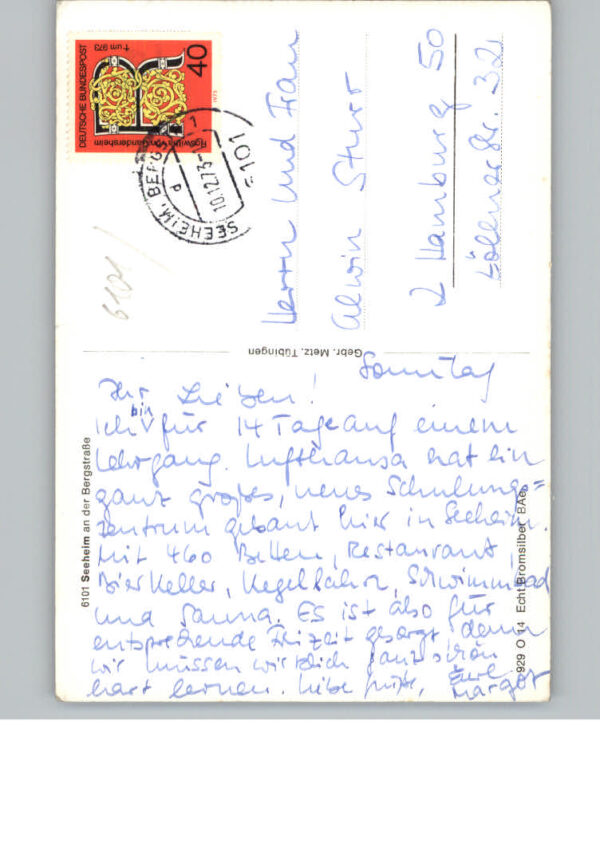 DEUTSCHE BUNDESPOST
40
† um 973
Hroswitha von Gandersheim
1973
SEEHEIM, BERGSTR 1
6101
10.12.73
d
6101
Herrn und Frau
Alwin
2 Hamburg 50
Str. 32
Gebr. Metz, Tübingen
6101 Seeheim an der Bergstraße
929 O 14 Echt Bromsilber BAeb
Sonntag
Ihr Lieben!
Ich bin für 14 Tage auf einem
Lehrgang. Lufthansa hat ein
ganz großes, neues Schulungs=
zentrum gebaut hier in Seeheim.
Mit 460 Betten, Restaurant,
Bierkeller, Kegelbahn, Schwimmbad
und Sauna. Es ist also für
entsprechende Freizeit gesorgt, denn
wir müssen wirklich ganz schön
hart lernen. Liebe Grüße, Eure
Margot